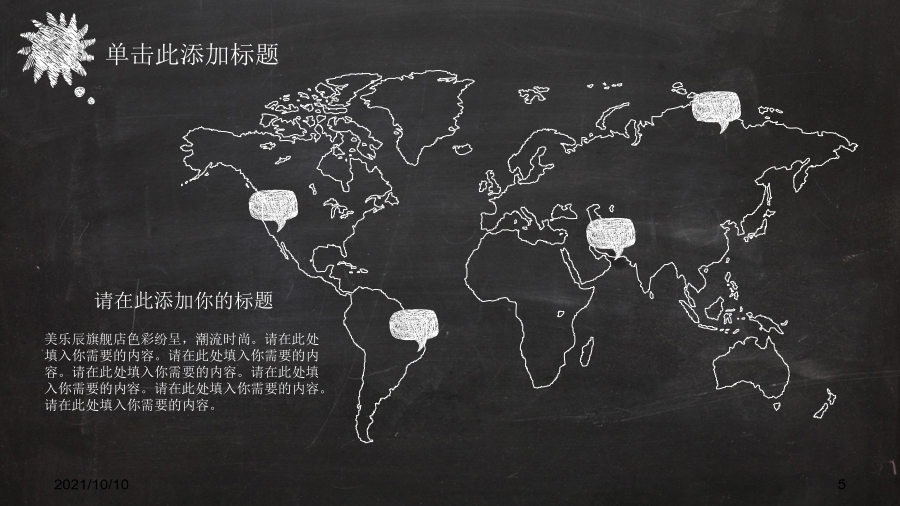 单击此添加标题
请在此添加你的标题
美乐辰旗舰店色彩纷呈，潮流时尚。请在此处
填入你需要的内容。请在此处填入你需要的内
容。请在此处填入你需要的内容。请在此处填
入你需要的内容。请在此处填入你需要的内容。
请在此处填入你需要的内容。
2021/10/10
5